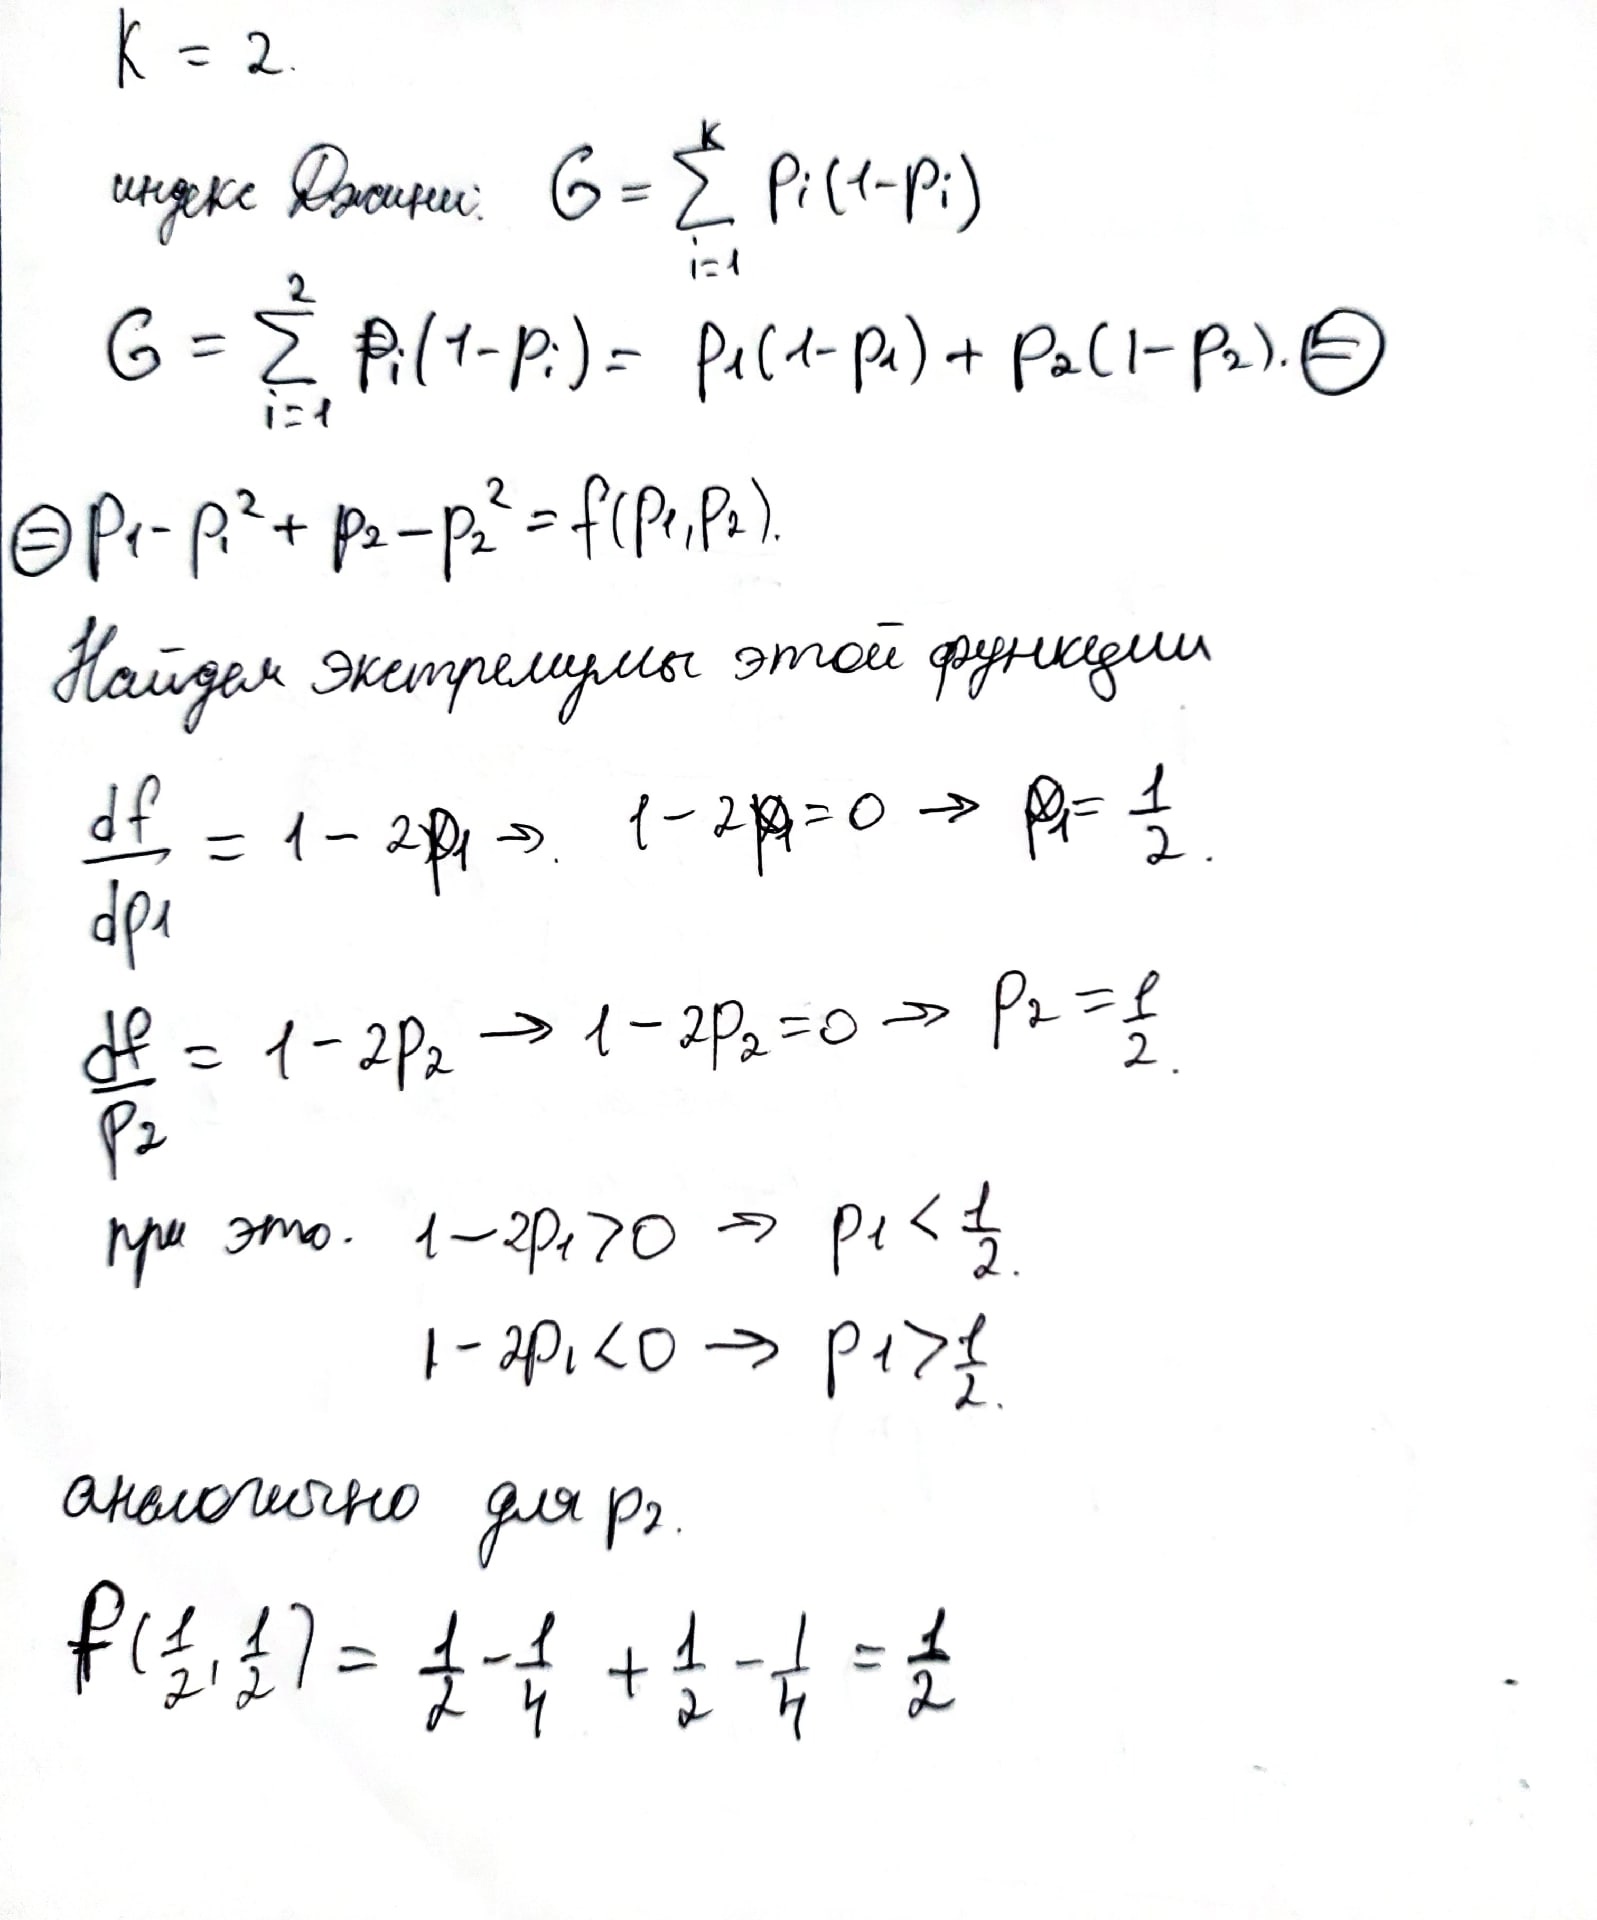 K = 2.
индекс Джини: G = ∑_{i=1}^{K} Pi(1-Pi)
G = ∑_{i=1}^{2} Pi(1-Pi) = P1(1-P1) + P2(1-P2). ⊜
⊜ P1 - P1² + P2 - P2² = f(P1, P2).
Найдем экстремумы этой функции
df/dp1 = 1 - 2p1 →. 1 - 2p1 = 0 → p1 = 1/2.
df/p2 = 1 - 2p2 → 1 - 2p2 = 0 → p2 = 1/2.
при это. 1 - 2p1 > 0 → p1 < 1/2.
1 - 2p1 < 0 → p1 > 1/2.
аналогично для p2.
f(1/2, 1/2) = 1/2 - 1/4 + 1/2 - 1/4 = 1/2